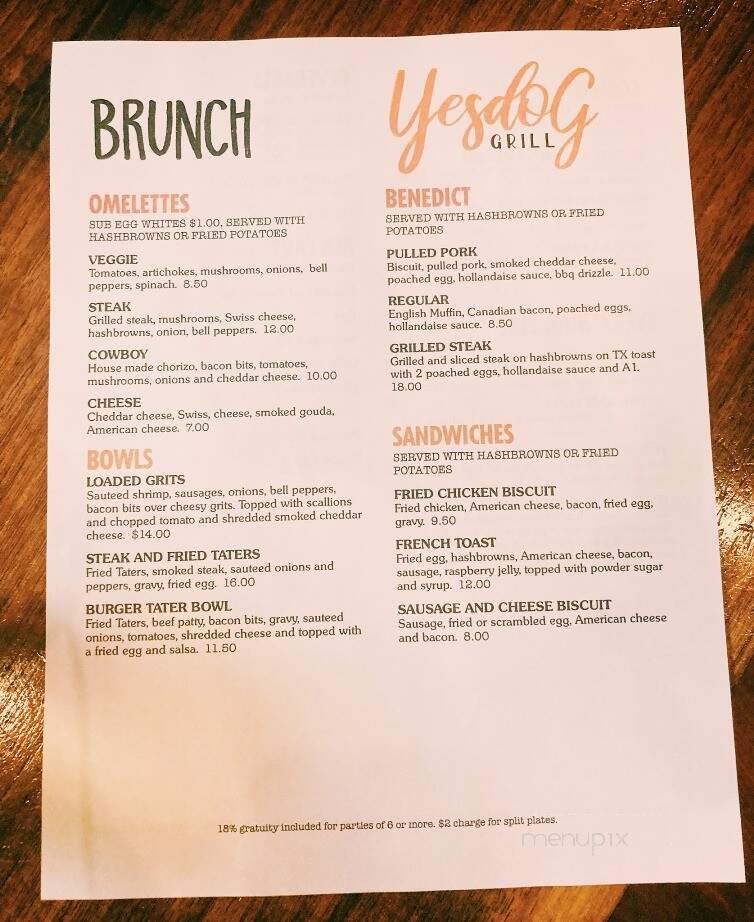 BRUNCH
OMELETTES
SUB EGG WHITES $1.00, SERVED WITH
HASHBROWNS OR FRIED POTATOES
VEGGIE
Tomatoes, artichokes, mushrooms, onions, bell
peppers, spinach. 8.50
STEAK
Grilled steak, mushrooms, Swiss cheese,
hashbrowns, onion, bell peppers. 12.00
COWBOY
House made chorizo, bacon bits, tomatoes,
mushrooms, onions and cheddar cheese. 10.00
CHEESE
Cheddar cheese, Swiss, cheese, smoked gouda,
American cheese. 7.00
BOWLS
LOADED GRITS
Sauteed shrimp, sausages, onions, bell peppers,
bacon bits over cheesy grits. Topped with scallions
and chopped tomato and shredded smoked cheddar
cheese. $14.00
STEAK AND FRIED TATERS
Fried Taters, smoked steak, sauteed onions and
peppers, gravy, fried egg. 16.00
BURGER TATER BOWL
Fried Taters, beef patty, bacon bits, gravy, sauteed
onions, tomatoes, shredded cheese and topped with
a fried egg and salsa. 11.50
YesdoG
GRILL
BENEDICT
SERVED WITH HASHBROWNS OR FRIED
POTATOES
PULLED PORK
Biscuit, pulled pork, smoked cheddar cheese,
poached egg, hollandaise sauce, bbq drizzle. 11.00
REGULAR
English Muffin, Canadian bacon, poached eggs,
hollandaise sauce. 8.50
GRILLED STEAK
Grilled and sliced steak on hashbrowns on TX toast
with 2 poached eggs, hollandaise sauce and A1.
18.00
SANDWICHES
SERVED WITH HASHBROWNS OR FRIED
POTATOES
FRIED CHICKEN BISCUIT
Fried chicken, American cheese, bacon, fried egg,
gravy. 9.50
FRENCH TOAST
Fried egg, hashbrowns, American cheese, bacon,
sausage, raspberry jelly, topped with powder sugar
and syrup. 12.00
SAUSAGE AND CHEESE BISCUIT
Sausage, fried or scrambled egg, American cheese
and bacon. 8.00
18% gratuity included for parties of 6 or more. $2 charge for split plates.
menupix